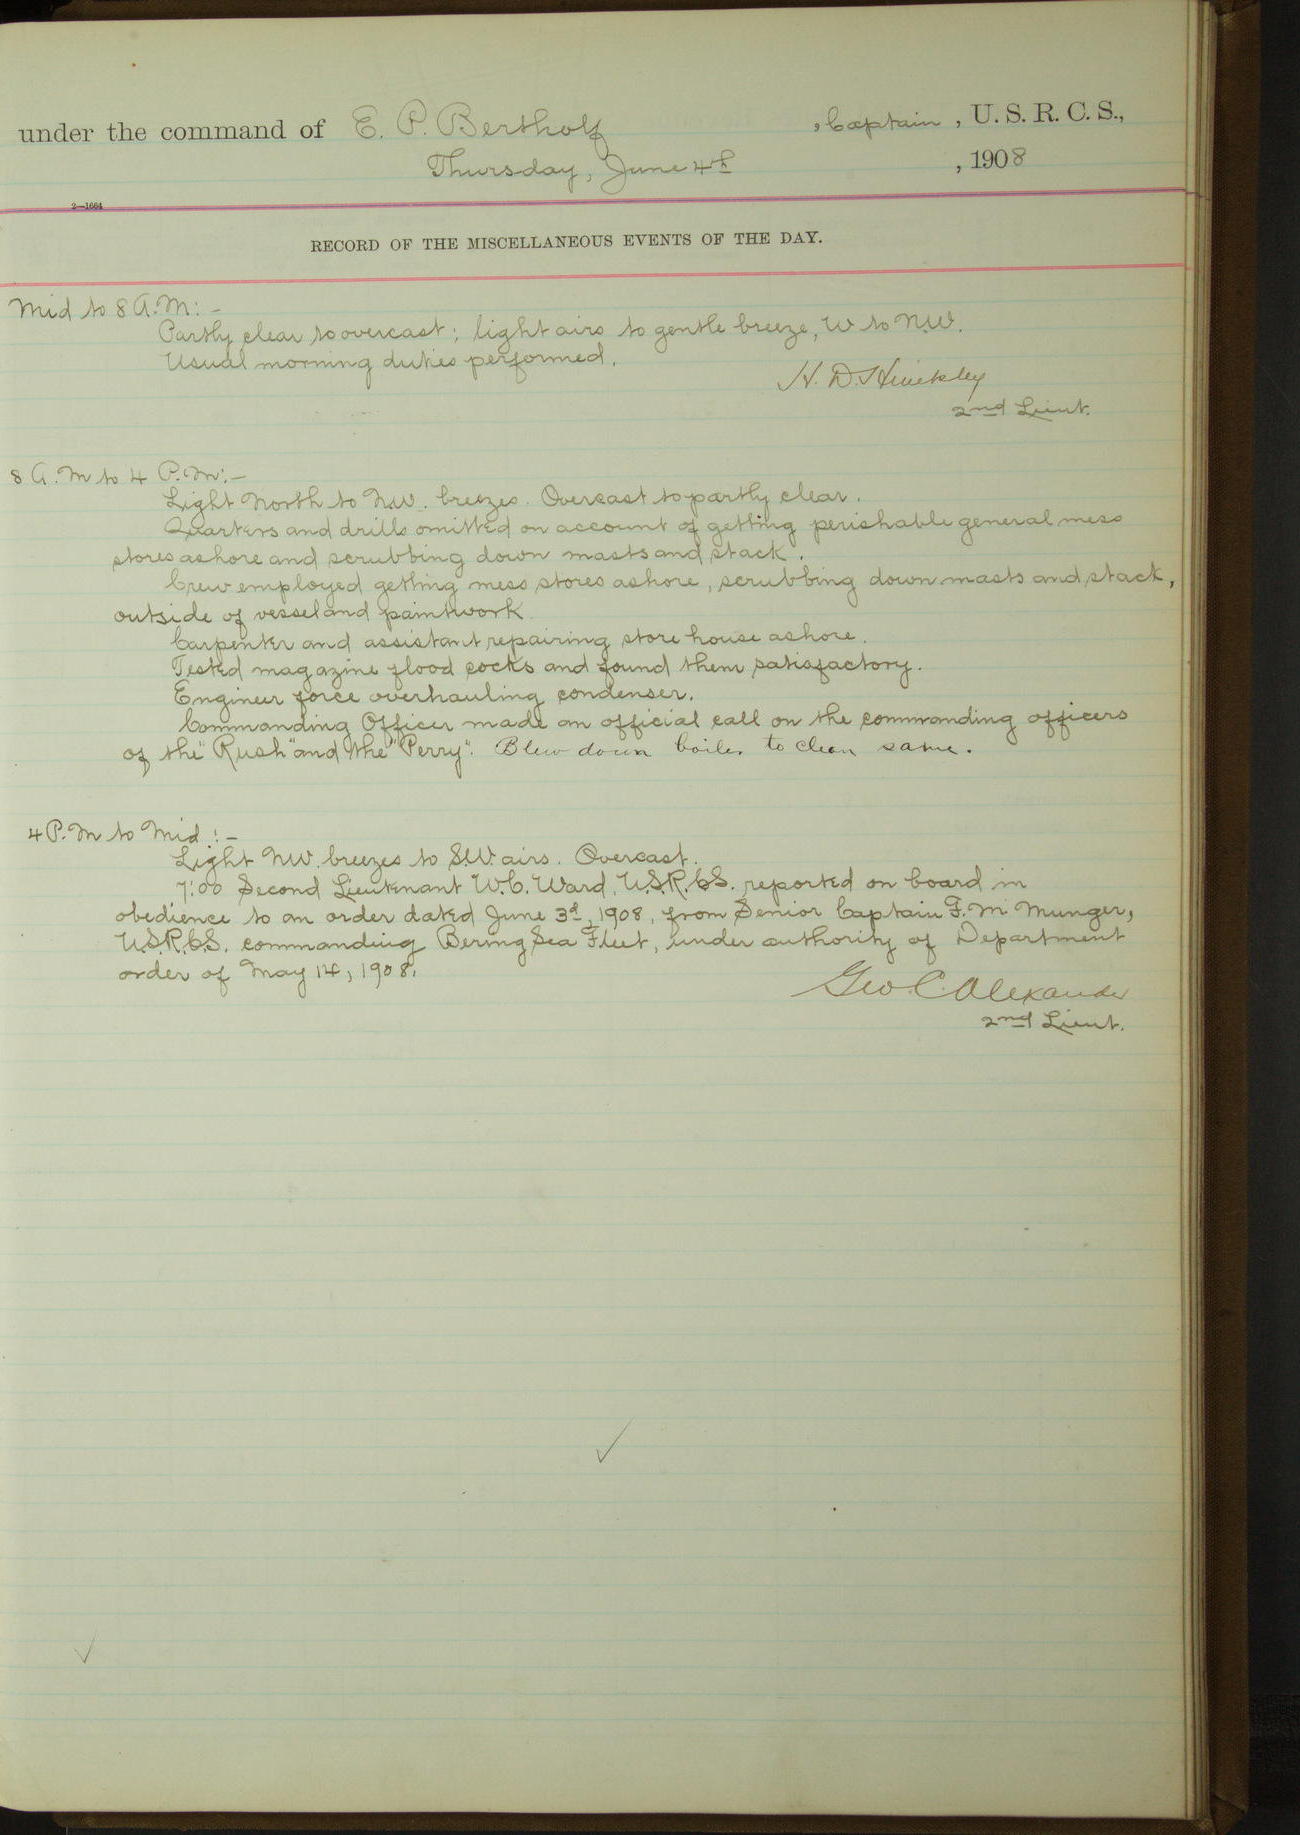 under the command of E. P. Bertholf , Captain , U. S. R. C. S.,
Thursday, June 4th , 1908
2—1664
RECORD OF THE MISCELLANEOUS EVENTS OF THE DAY.
Mid to 8 A.M:-
Partly clear to overcast; light airs to gentle breeze, W to NW.
Usual morning duties performed.
H. D. Hinckley
2nd Lieut.
8 A.M to 4 P.M:-
Light North to NW. breezes. Overcast to partly clear.
Quarters and drills omitted on account of getting perishable general mess
stores ashore and scrubbing down masts and stack.
Crew employed getting mess stores ashore, scrubbing down masts and stack,
outside of vessel and paintwork.
Carpenter and assistant repairing store house ashore.
Tested magazine flood cocks and found them satisfactory.
Engineer force overhauling condenser.
Commanding Officer made an official call on the commanding officers
of the "Rush" and the "Perry". Blew down boiler to clean same.
4 P.M to Mid:-
Light NW. breezes to S.W. airs. Overcast.
7:00 Second Lieutenant W.C. Ward, U.S.R.C.S. reported on board in
obedience to an order dated June 3d, 1908, from Senior Captain F. M. Munger,
U.S.R.C.S. commanding Bering Sea Fleet, under authority of Department
order of May 14, 1908.
Geo. C. Alexander
2nd Lieut.